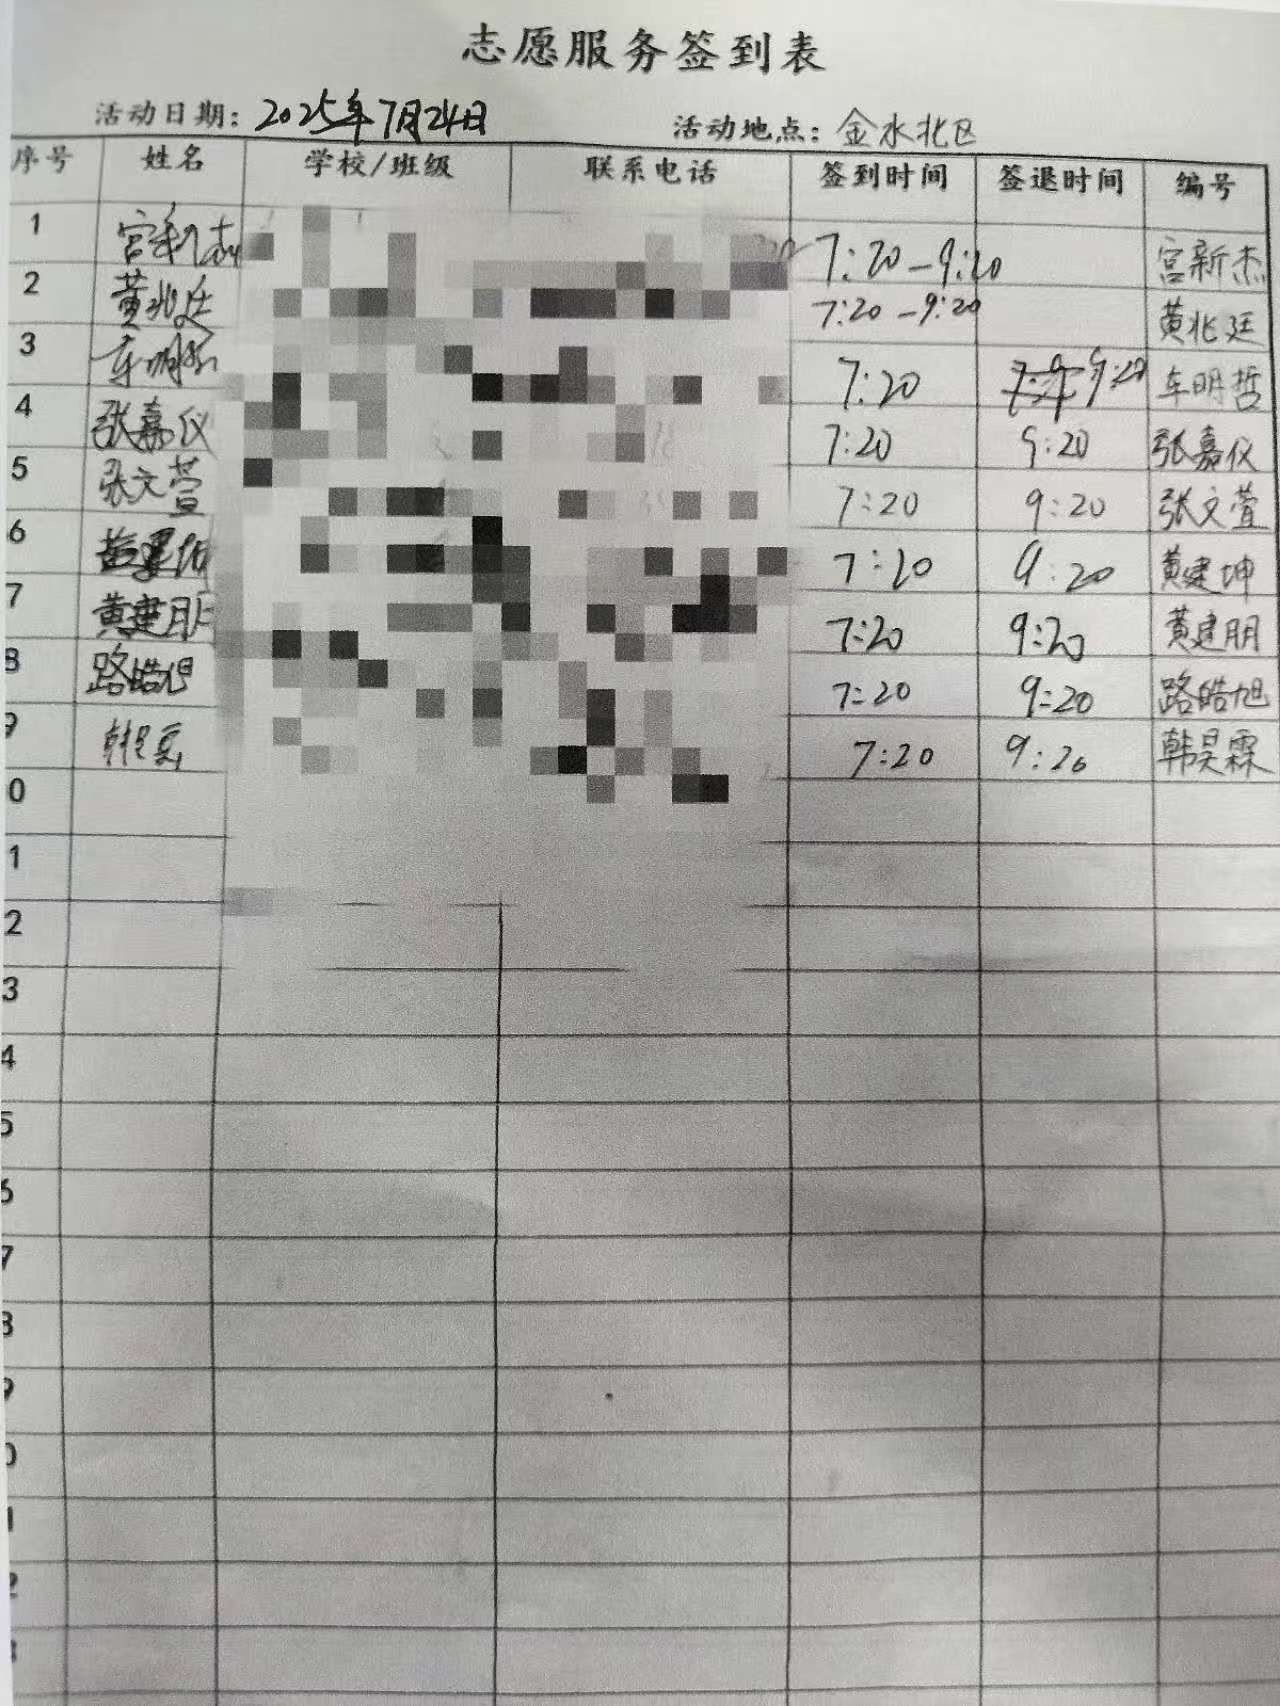 志愿服务签到表
活动日期：2025年7月24日 活动地点：金水北区
序号 姓名 学校/班级 联系电话 签到时间 签退时间 编号
1 宫新杰 7:20-9:20 宫新杰
2 黄兆廷 7:20-9:20 黄兆廷
3 车明哲 7:20 9:20 车明哲
4 张嘉仪 7:20 9:20 张嘉仪
5 张文萱 7:20 9:20 张文萱
6 黄建坤 7:20 9:20 黄建坤
7 黄建朋 7:20 9:20 黄建朋
8 路皓旭 7:20 9:20 路皓旭
9 韩昊霖 7:20 9:20 韩昊霖
0
1
2
3
4
5
6
7
8
9
0
1
2
3